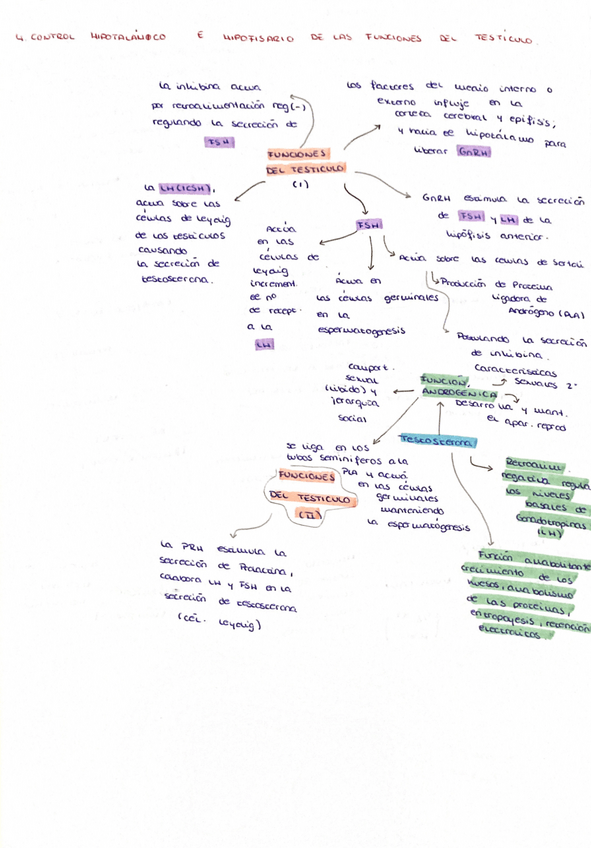 4. CONTROL HIPOTALÁMICO E HIPOFISARIO DE LAS FUNCIONES DEL TESTÍCULO.
La inhibina actúa
por retroalimentación neg(-)
regulando la secreción de
FSH
Los factores del medio interno o
externo influye en la
corteza cerebral y epífisis;
y varía el hipotálamo para
liberar GnRH
FUNCIONES
DEL TESTÍCULO
(I)
La LH(ICSH),
actúa sobre las
células de leydig
de los testículos
causando
la secreción de
testosterona.
GnRH estimula la secreción
de FSH y LH de la
hipófisis anterior.
FSH
Actúa
en las
células de
leydig
increment.
el nº
de recept.
a la
LH
Actúa en
las células germinales
en la
espermatogenesis
Actúa sobre las células de Sertoli
Producción de Proteína
Ligadora de
Andrógeno (PLA)
Estimulando la secreción
de inhibina.
Comport.
sexual
(libido) y
jerarquía
social
FUNCIÓN
ANDROGÉNICA
Características
sexuales 2º
Desarrolla y mant.
el apar. reprod
Testosterona
se liga en los
tubos seminíferos a la
PLA y actúa
en las células
germinales
manteniendo
la espermatogénesis
FUNCIONES
DEL TESTÍCULO
(II)
Retroalim.
negativa regula
los niveles
basales de
Gonadotropinas
(LH)
La PRH estimula la
secreción de Prolactina,
colabora LH y FSH en la
secreción de testosterona
(cél. leydig)
Función anabolizante
crecimiento de los
huesos, anabolismo
de las proteínas,
eritropoyesis, retención
electrolitos.